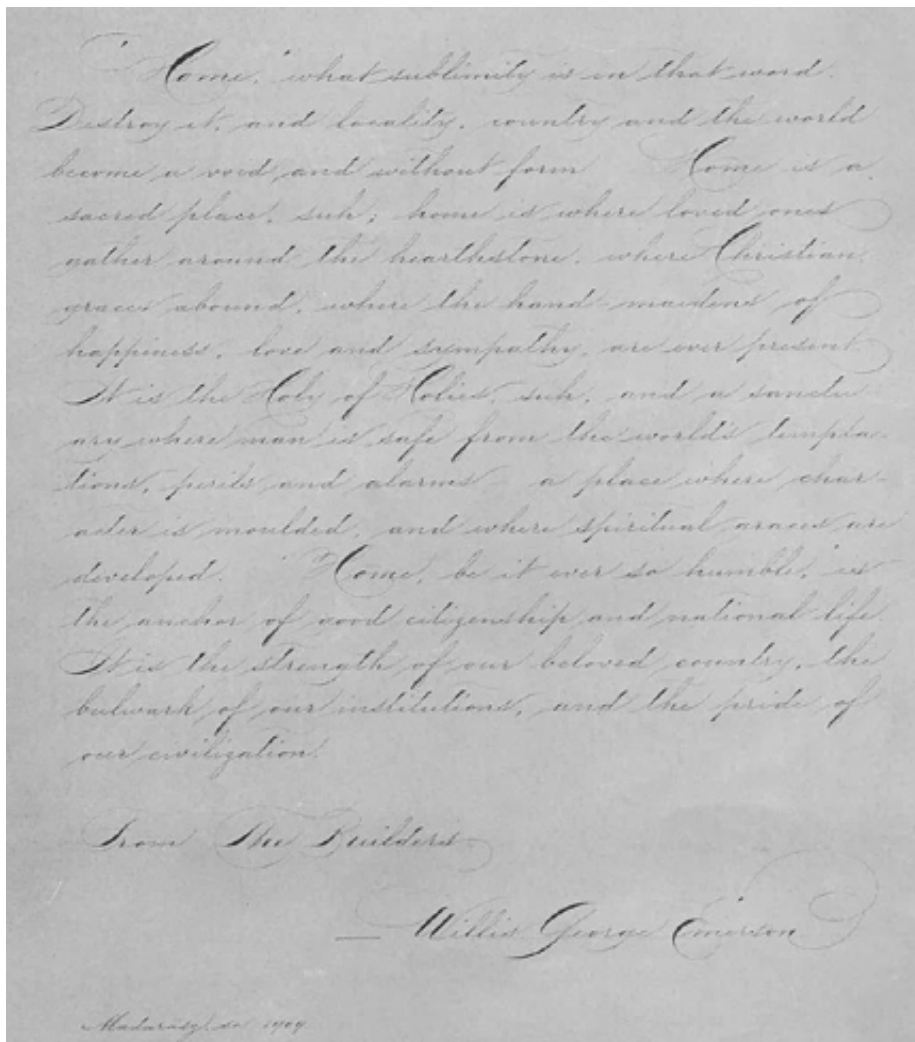 "Home," what sublimity is in that word.
Destroy it, and locality, country and the world
become a void and without form. Home is a
sacred place, suh; home is where loved ones
gather around the hearthstone, where Christian
graces abound, where the hand-maidens of
happiness, love and sympathy, are ever present.
It is the Holy of Holies, suh, and a sanctu-
ary where man is safe from the world's tempta-
tions, perils and alarms - a place where char-
acter is moulded, and where spiritual graces are
developed. "Home, be it ever so humble," is
the anchor of good citizenship and national life.
It is the strength of our beloved country, the
bulwark of our institutions, and the pride of
our civilization."
From The Builders
— Willis George Emerson
Madarasz, 1909